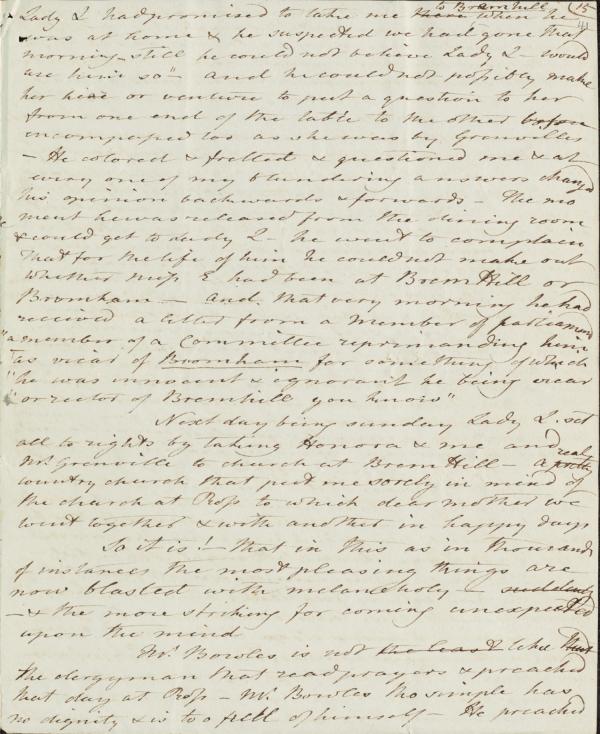 to Bremhill 15
Lady L had promised to take me there when he 41
was at home & he suspected we had gone that
morning - still he could not believe Lady L - would
use him so" - and he could not possibly make
her hear or venture to put a question to her
from one end of the table to the other before
encompassed as as he was by Grenvilles
- He colored & fretted & questioned me & at
every one of my blundering answers changed
his opinion backwards & forwards - The mo
ment he was released from the dining room
& could get to Lady L. he went to complain
that for the life of him he could not make out
whether Miss E had been at Brem Hill or
Bromham - and that very morning he had
received a letter from a Member of parliament
"a member of a Committee reprimanding him
"as vicar of Bromham for something of which
"he was innocent & ignorant he being vicar
"or rector of Bremhill you know"
Next day being sunday Lady L. set
all to rights by taking Honora & me and
Mr. Grenville to church at Brem Hill - a real pretty
country church that put me sorely in mind of
the church at Ross to which dear mother we
went together & with another in happy days
So it is! - that in this as in thousands
of instances the most pleasing things are
now blasted with melancholy - suddenly
- & the more striking for coming unexpected
upon the mind
Mr. Bowles is not the least like
the clergyman that read prayers & preached
that day at Ross - Mr. Bowles tho simple has
no dignity & is too full of himself - He preached